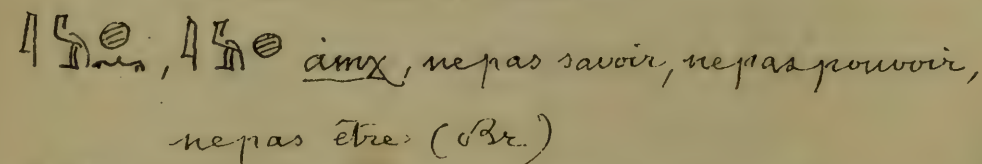 , ȧmχ, ne pas savoir, ne pas pouvoir,
ne pas être (Br.)